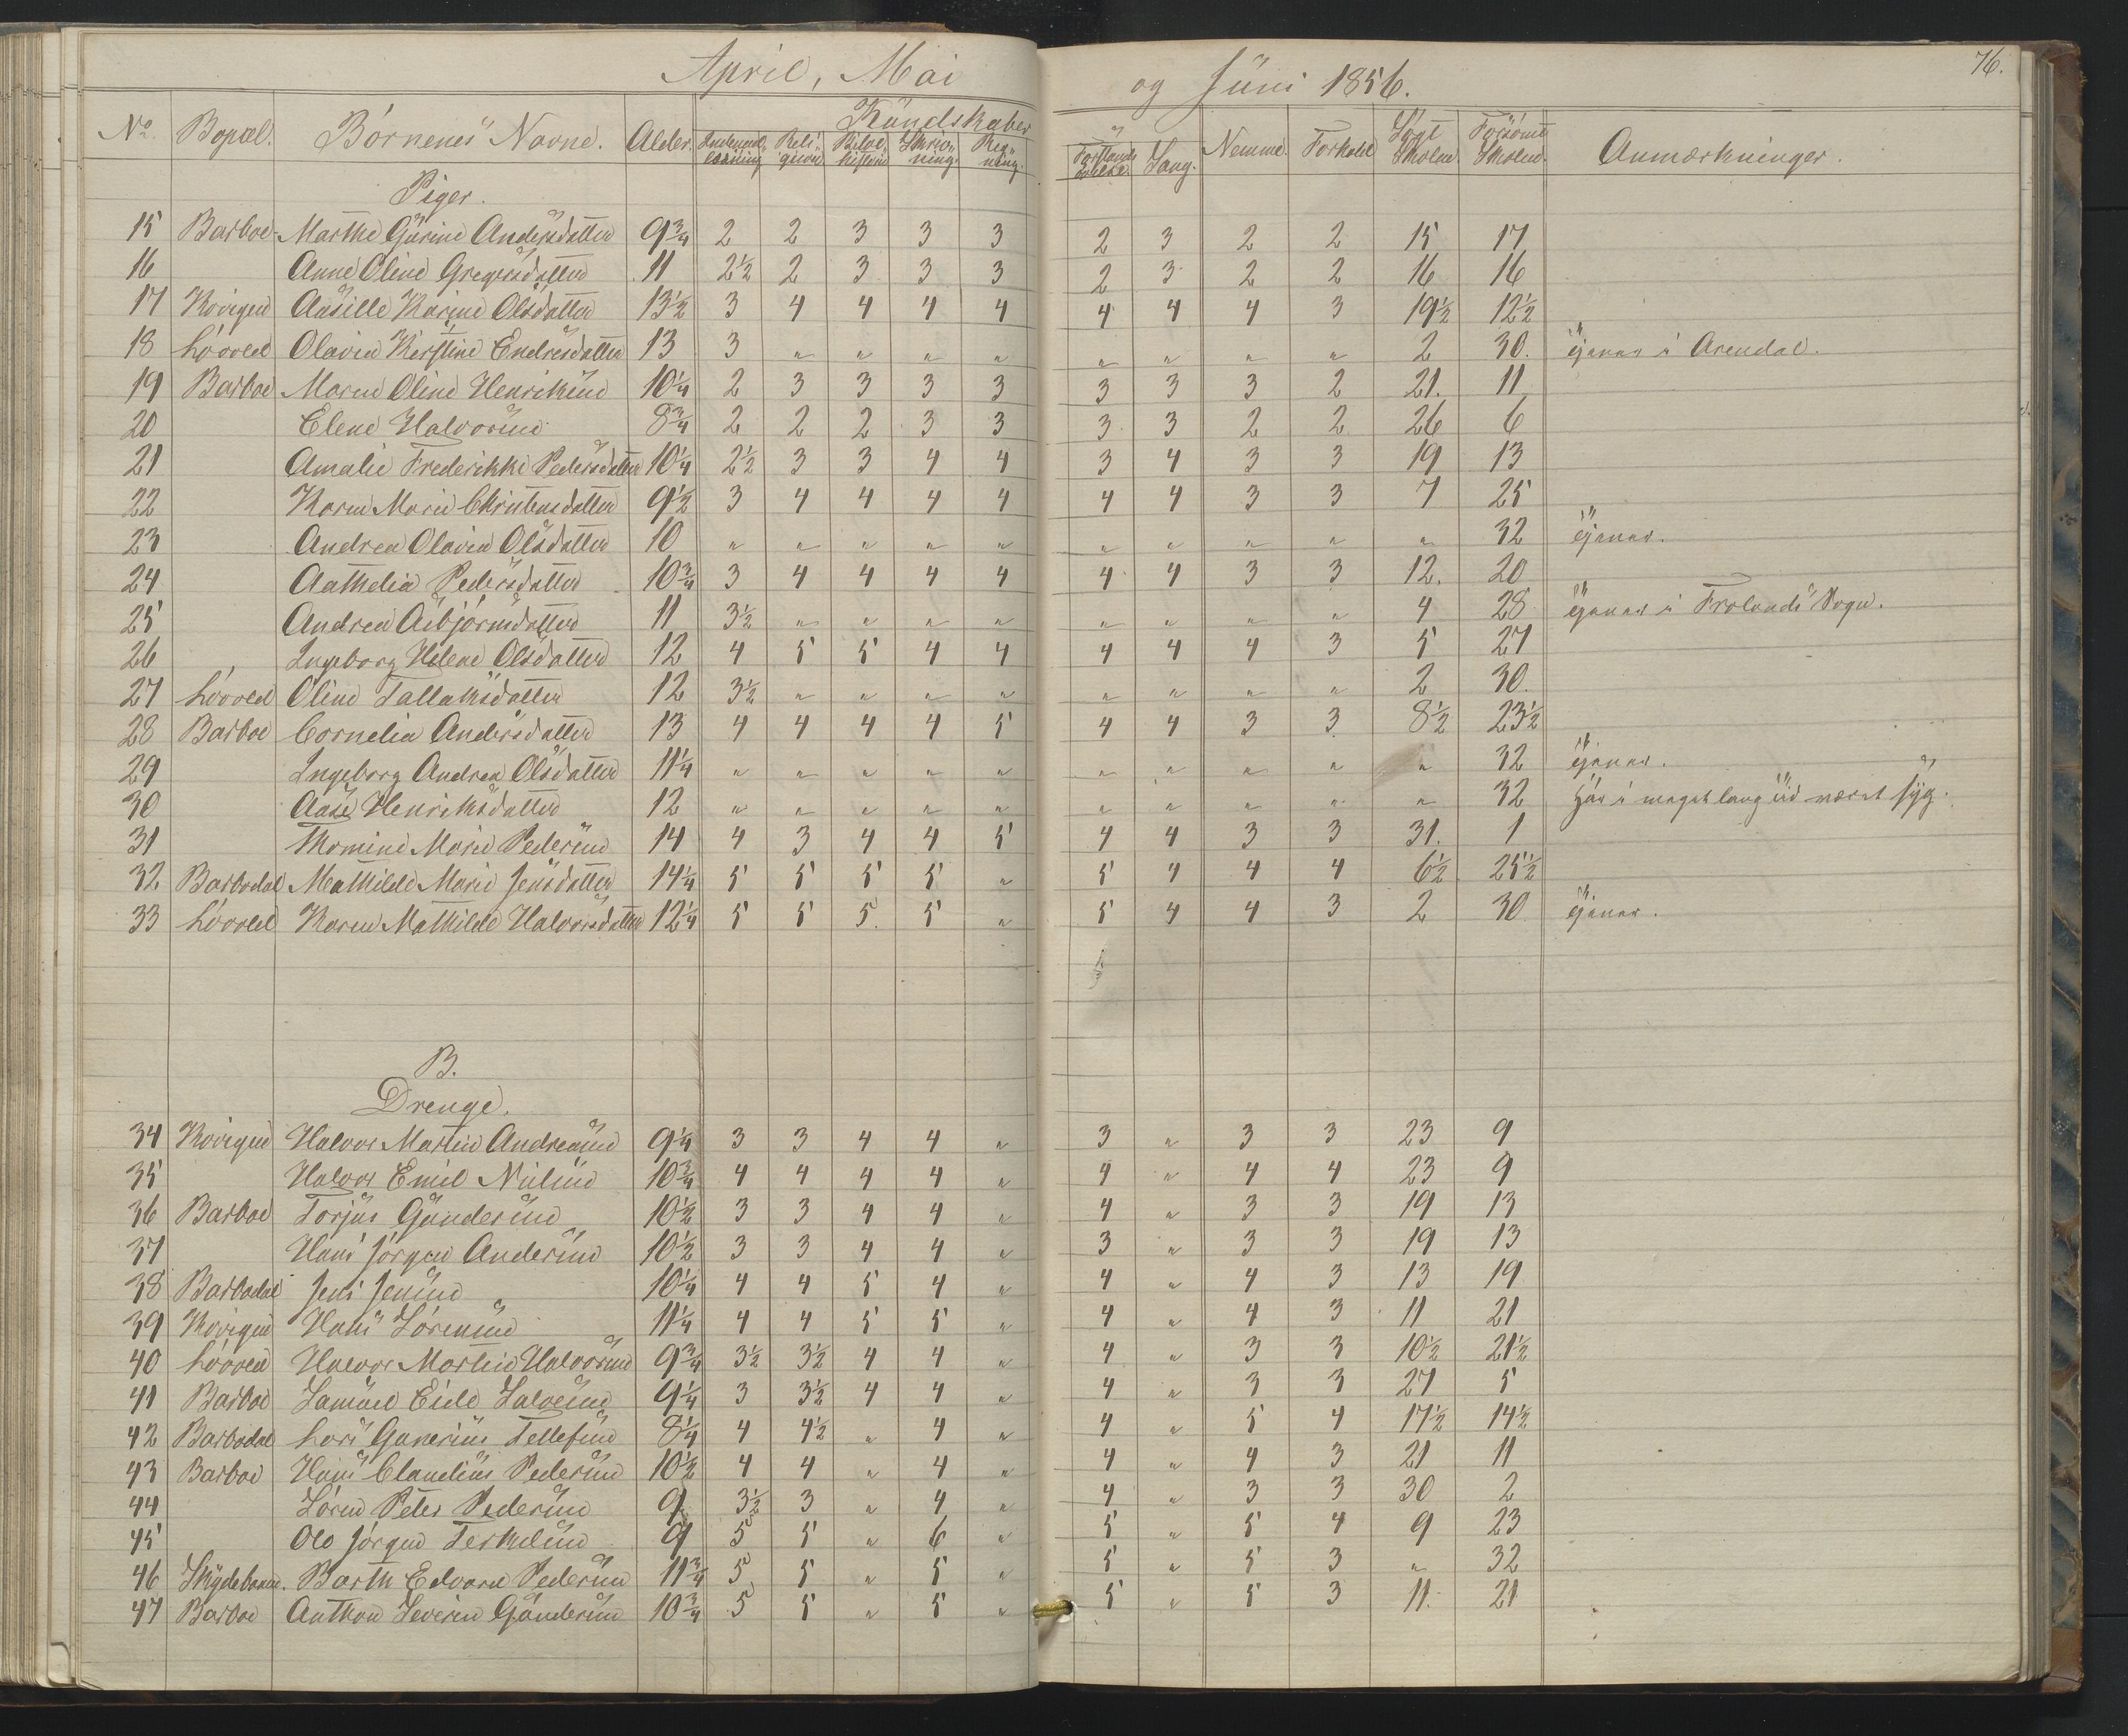 76.
April, Mai og Juni 1856.
No. Bopæl. Børnenes Navne. Alder. Kundskaber Nemme. Forhold Søgt Skolen. Forsømt Skolen. Anmærkninger.
Indenad-læsning Reli-gion Bibel-historie Skriv-ning. Reg-ning. Forstands Øvelse. Sang.
Piger.
15 Barboe Marthe Gurine Andersdatter 9 3/4 2 2 3 3 3 2 3 2 2 15 17
16 Anne Oline Gregersdatter 11 2 1/2 2 3 3 3 2 3 2 2 16 16
17 Kovigen Aasille Karine Olsdatter 13 1/2 3 4 4 4 4 4 4 4 3 19 1/2 12 1/2
18 Løvold Olavia Kirstine Endresdatter 13 3 " " " " " " " " 2 30. tjener i Arendal.
19 Barboe Maren Oline Henriksen 10 1/4 2 3 3 3 3 3 3 3 2 21. 11
20 Elene Halvorsen 8 3/4 2 2 2 3 3 3 3 2 2 26 6
21 Amalie Frederikke Pedersdatter 10 1/4 2 1/2 3 3 4 4 3 4 3 3 19 13
22 Karen Marie Christensdatter 9 1/2 3 4 4 4 4 4 4 3 3 7 25
23 Andrea Olavia Olsdatter 10 " " " " " " " " " " 32 tjener.
24 Aathelia Pedersdatter 10 3/4 3 4 4 4 4 4 4 3 3 12. 20
25 Andrea Asbjørnsdatter 11 3 1/2 " " " " " " " " 4 28 tjener i Frolands Sogn.
26 Ingeborg Helene Olsdatter 12 4 5 5 4 4 4 4 4 3 5 27
27 Løvold Oline Tallaksdatter 12 3 1/2 " " " " " " " " 2 30.
28 Barboe Cornelia Andersdatter 13 4 4 4 4 5 4 4 3 3 8 1/2 23 1/2
29 Ingeborg Andrea Olsdatter 11 1/4 " " " " " " " " " " 32 tjener.
30 Aase Henriksdatter 12 " " " " " " " " " " 32 har i meget lang tid været syg.
31 Thomine Marie Pedersen 14 4 3 4 4 5 4 4 3 3 31. 1
32 Barbodal Mathilde Marie Jensdatter 14 1/4 5 5 5 5 " 5 4 4 4 6 1/2 25 1/2
33 Løvold Karen Mathilde Halvorsdatter 12 1/4 5 5 5. 5 " 5 4 4 3 2 30 tjener.
B.
Drenge.
34 Kovigen Halvor Martin Andreasen 9 1/4 3 3 4 4 " 3 " 3 3 23 9
35 Halvor Emil Nielsen 10 3/4 4 4 4 4 " 4 " 4 4 23 9
36 Barboe Torjus Gundersen 10 1/2 3 3 4 4 " 4 " 3 3 19 13
37 Hans Jørgen Andersen 10 1/2 3 3 4 4 " 3 " 3 3 19 13
38 Barbodal Jens Jensen 10 1/4 4 4 5 4 " 4 " 4 3 13 19
39 Kovigen Hans Sørensen 11 1/4 4 4 5 5 " 4 " 4 3 11 21
40 Løvold Halvor Martin Halvorsen 9 3/4 3 1/2 3 1/2 4 4 " 4 " 3 3 10 1/2 21 1/2
41 Barboe Samuel Eide Salvesen 9 1/4 3 3 1/2 4 4 " 4 " 3 3 27 5
42 Barbodal Lars Gunerius Tellefsen 8 1/4 4 4 1/2 " 4 " 4 " 5 4 17 1/2 14 1/2
43 Barboe Hans Claudius Pedersen 10 1/2 4 4 " 4 " 4 " 4 3 21 11
44 Søren Peter Pedersen 9 3 1/2 3 " 4 " 4 " 3 3 30 2
45 Ole Jørgen Terkelsen 9 5 5 " 6 " 5 " 5 4 9 23
46 Skydebanen. Barth Edvard Pedersen 11 3/4 5 5 " 5 " 5 " 5 3 " 32
47 Barboe Anthon Severin Gundersen 10 3/4 5 5 " 5 " 5 " 5 3 11. 21